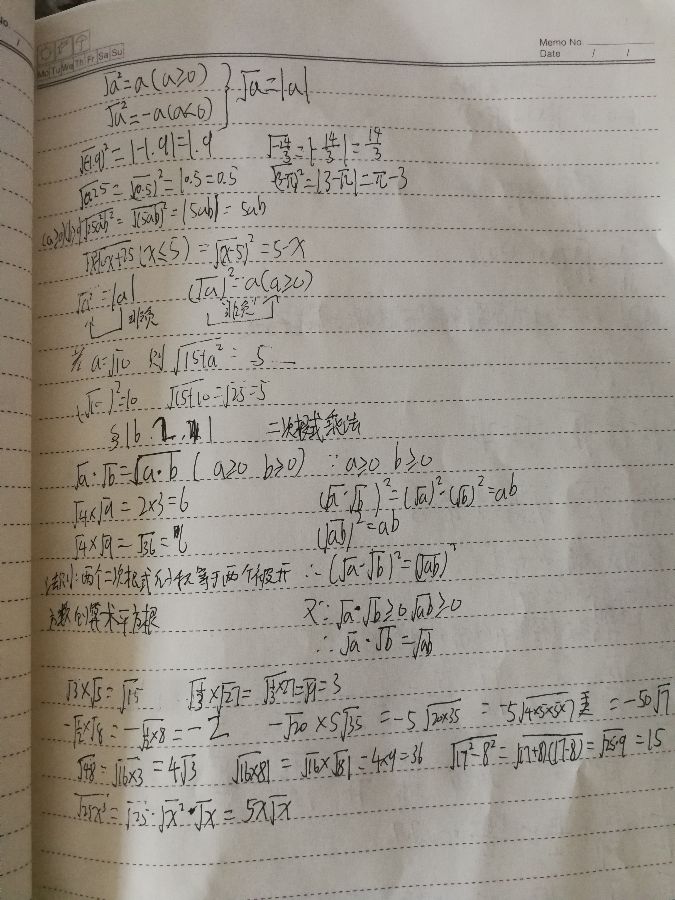 Memo No
Mo Tu We Th Fr Sa Su
Date / /
√a²=a(a≥0)
√a²=-a(a<0) } √a=|a|
√(-1.9)²=|-1.9|=1.9 √-14/3=|-14/3|=14/3
√0.25=√(0.5)²=|0.5=0.5 √(3-π)²=|3-π|=π-3
√25ab²=√(5ab)²=|5ab|=5ab
(x≤5)=√(x-5)²=5-x
√a²=|a| (√a)²=a(a≥0)
非负 非负
若a=√10 则√15+a²=5
(√10)²=10 √15+10=√25=5
§16.2.1 二次根式乘法
√a·√b=√a·b(a≥0 b≥0) ∵a≥0 b≥0
√4×√9=2×3=6 (√a·√b)²=(√a)²·(√b)²=ab
√4×√9=√36=6 (√ab)²=ab
结论:两个二次根式的积等于两个被开 ∴(√a·√b)²=(√ab)²
方数的算术平方根 又∵√a·√b≥0 √ab≥0
∴√a·√b=√ab
√3×√5=√15 √1/3×√27=√1/3×27=√9=3
-√1/2×√8=-√1/2×8=-2 -√20×5√35=-5√20×35=-5√4×5×5×7=-50√7
√48=√16×3=4√3 √16×81=√16×√81=4×9=36 √17²-8²=√(17+8)(17-8)=√25·9=15
√25x³=√25·√x²·√x=5x√x